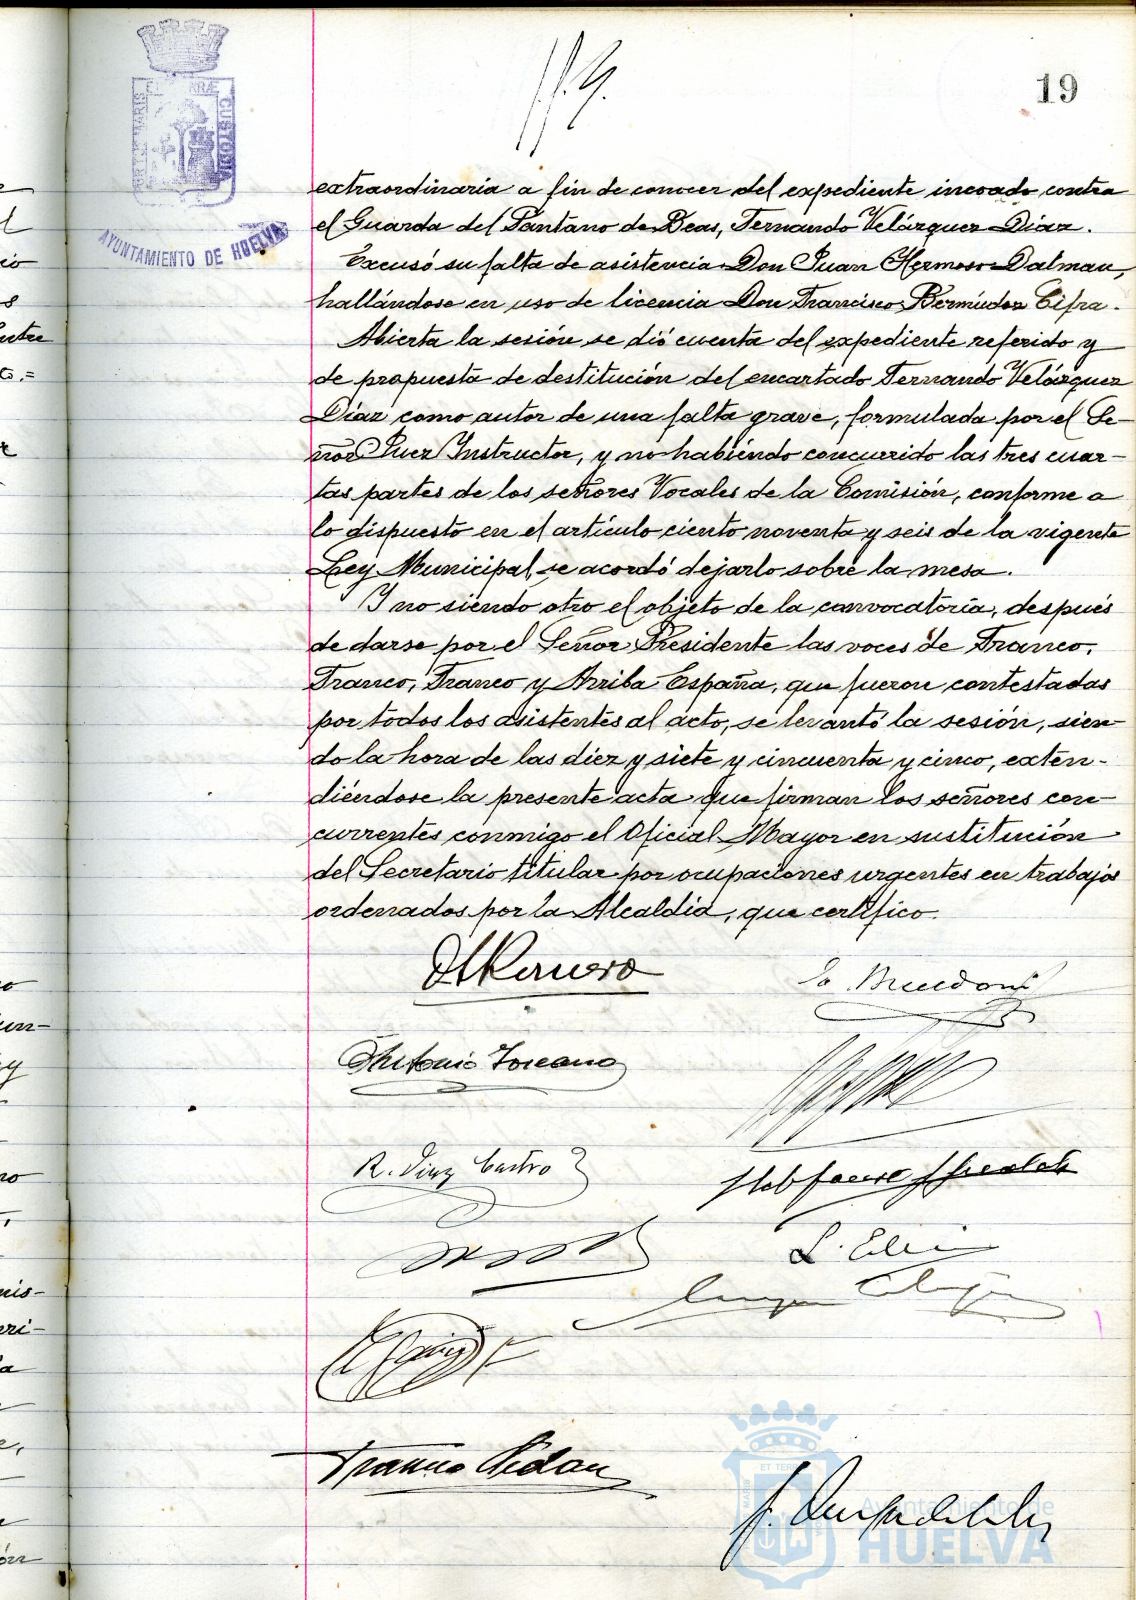 19
AYUNTAMIENTO DE HUELVA
extraordinaria a fin de conocer del expediente incoado contra
el Guarda del Pantano de Beas, Fernando Velázquez Díaz.
Excusó su falta de asistencia Don Juan Hermoso Dalmau,
hallándose en uso de licencia Don Francisco Bermúdez Cifra.
Abierta la sesión se dió cuenta del expediente referido y
de propuesta de destitución del encartado Fernando Velázquez
Díaz como autor de una falta grave, formulada por el Se-
ñor Juez Instructor, y no habiéndo concurrido las tres cuar-
tas partes de los señores Vocales de la Comisión, conforme a
lo dispuesto en el artículo ciento noventa y seis de la vigente
Ley Municipal, se acordó dejarlo sobre la mesa.
Y no siendo otro el objeto de la convocatoria, después
de darse por el Señor Presidente las voces de Franco,
Franco, Franco y Arriba España, que fueron contestadas
por todos los asistentes al acto, se levantó la sesión, sien-
do la hora de las diez y siete y cincuenta y cinco, exten-
diéndose la presente acta que firman los señores con-
currentes conmigo el Oficial Mayor en sustitución
del Secretario titular por ocupaciones urgentes en trabajos
ordenados por la Alcaldía, que certifico.
Antonio Toscano
R. Díaz Castro
Ayuntamiento de
HUELVA